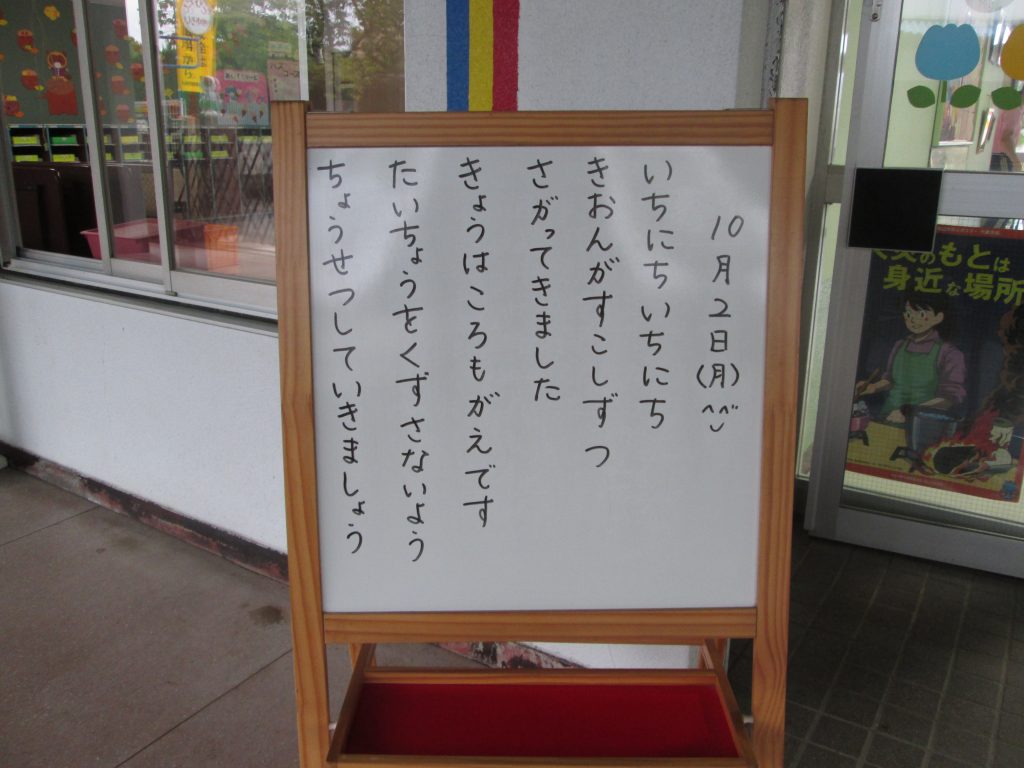 10月2日(月)^^
いちにちいちにち
きおんがすこしずつ
さがってきました
きょうはころもがえです
たいちょうをくずさないよう
ちょうせつしていきましょう
のもとは
身近な場所